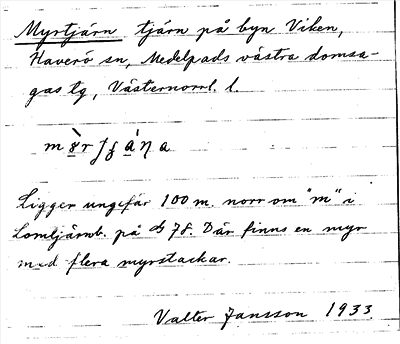 Myrtjärn tjärn på byn Viken,
Haverö sn, Medelpads västra domsa-
gas tg, Västernorrl. l.
Ligger ungefär 100 m. norr om "m" i
Lomtjärnb. på 78. Där finns en myr
med flera myrstackar.
Valter Jansson 1933